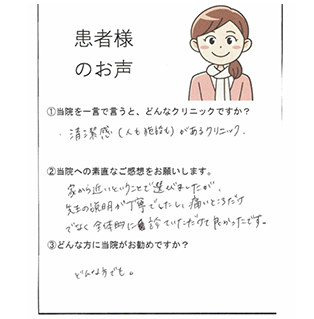 患者様
のお声
①当院を一言で言うと、どんなクリニックですか？
・清潔感(人も施設も)があるクリニック.
②当院への素直なご感想をお願いします。
家から近いということで選びましたが、
先生の説明が丁寧でしたし、痛いところだけ
でなく全体的に診ていただけて良かったです。
③どんな方に当院がお勧めですか？
どんな方でも。